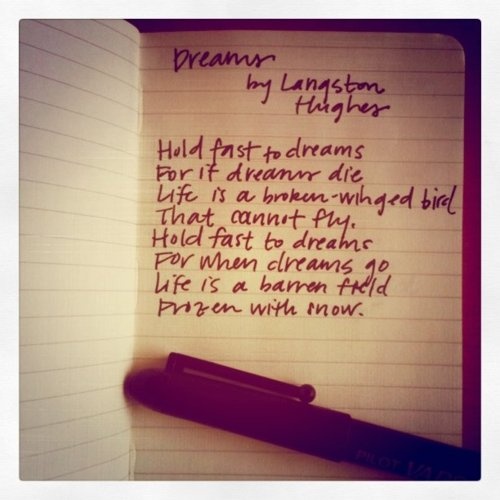 Dreams
by Langston
Hughes
Hold fast to dreams
For if dreams die
Life is a broken-winged bird
That cannot fly.
Hold fast to dreams
For when dreams go
Life is a barren field
Frozen with snow.
PILOT